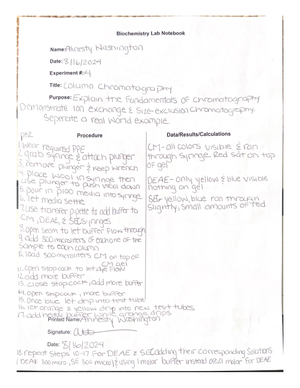 Biochemistry Lab Notebook
Name: Amnesty Washington
Date: 8/16/2024
Experiment #: 4
Title: Column Chromatography
Purpose: Explain the Fundamentals of chromatography
Demonstrate ion exchange & Size-exclusion Chromatography.
Seperate a real world example.
Procedure
1. Wear required PPE
2. grab syringe & attach plunger
3. remove plunger & keep wrench
4. place wool in syringe then
use plunger to push wool down
5. pour in media into syringe
6. let media settle
7. use transfer pipette to add buffer to
CM, DEAE, & SE syringes
8. open seam to let buffer flow through
9. add 300 microliters of each one of the
sample to each column
10. load 300 microliters CM on top of
CM gel
11. open stopcock to let dye flow
12. add more buffer
13. close stopcock, add more buffer
14. open stopcock, more buffer
15. once blue let drip into test tube
16. let orange & yellow drip into new test tubes
17. add
Data/Results/Calculations
CM- all colors visible & ran
through syringe. Red sat on top
of gel
DEAE- only yellow & blue visible
nothing on gel
SE- yellow, blue ran through
slightly, small amounts of red
Printed Name: Amnesty Washington
Signature:
Date: 8/16/2024
18. repeat steps 10-17 for DEAE & SE adding their corresponding solutions
(DEAE 300 micro, SE 300 micro) & using 1 molar buffer instead of